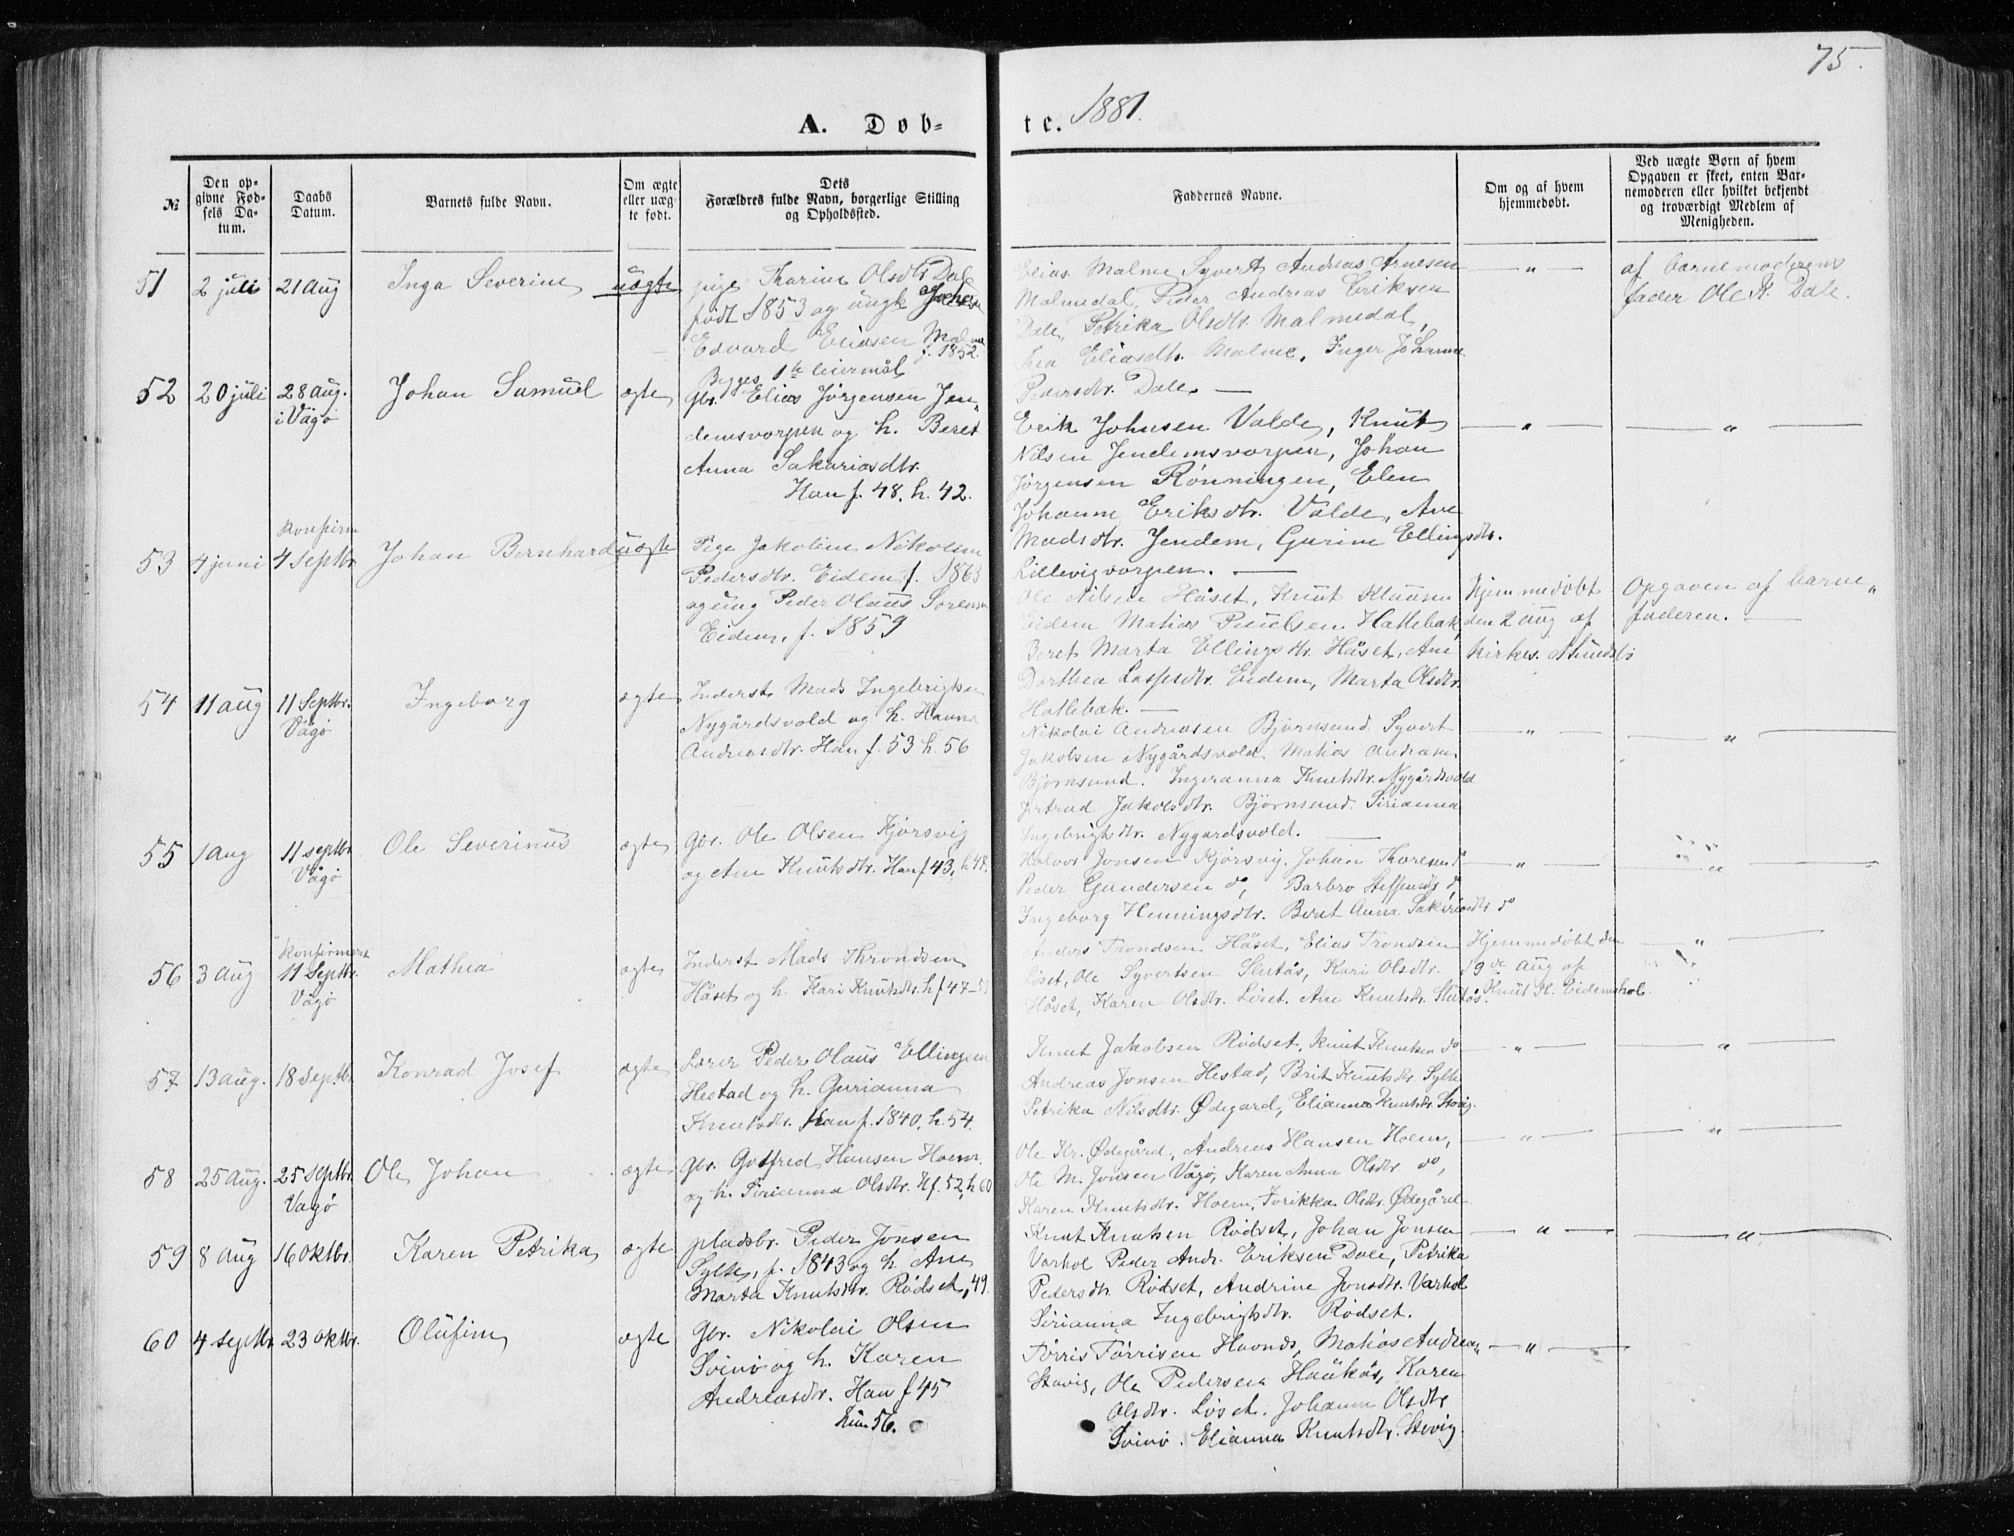 75.
A. Døb-
te.
1881.
№
Den op-
givne Fød-
sels Da-
tum.
Daabs
Datum.
Barnets fulde Navn.
Om ægte
eller uæg-
te født.
Dets
Forældres fulde Navn, borgerlige Stilling
og Opholdssted.
Faddernes Navne.
Om og af hvem
hjemmedøbt.
Ved uægte Børn af hvem
Opgaven er skeet, enten Bar-
nemoderen eller hvilket bekjendt
og troværdigt Medlem af
Menigheden.
51
2 juli
21 Aug
Inga Severine
uægte
pige Karine Olsdtr. Dal
født 1853 og ungk
Edvard Eliasen Malme
f. 1852.
Begges 1te leiermål
Elias Malme Syvert Andreas Arnesen
Malmedal, Peder Andreas Eriksen
Dale, Petrika Olsdtr. Malmedal,
Eliasdtr. Malme, Inger Johanne
Pedersdtr. Dale. —
— " —
af barnemoderens
fader Ole K. Dale.
52
20 juli
28 aug.
i Vågø
Johan Samuel
ægte
Gbr. Elias Jørgensen Jen-
demsvorpen og h. Beret
Anna Sakariasdtr.
Han f. 48, h. 42.
Erik Johnsen Valde, Knut
Nilsen Jendemsvorpen, Johan
Jørgensen Rønningen, Elen
Johanne Eriksdtr. Valde, Ane
Madsdtr. Jendem, Gurine Ellingsdtr.
Lillevigvorpen. —
— " —
— " —
53
4 juni
konfirm
4 Septbr.
Johan Bernhard
uægte
Pige Jakoline Nikoline
Pedersdtr. Eidem f. 1863
og ung Peder Olaus Sørensen
Eidem, f. 1859
Ole Nilsen Håset, Knut Klausen
Eidem Matias Paulsen Hatlebak,
Beret Marta Ellingsdtr. Håset, Ane
Dorthea Lassesdtr. Eidem, Marta Olsdtr.
Hatlebak. —
Hjemmedøbt
den 2 aug af
kirkes.
Opgaven af barne-
faderen. —
54
11 aug
11 Septbr.
Vågø
Ingeborg
ægte
Inderst Mads Ingebrigtsen
Nygårdsvold og h. Hanna
Andreasdtr. Han f. 53 h. 56
Nikolai Andreasen Bjørnsund. Syvert
Jakobsen Nygårdsvold Matias Andreasen
Bjørnsund. Ingeranna Knutsdtr. Nygårdsvold
Jertrud Jakobsdtr. Bjørnsund. Sirianna
Ingebrigtsdtr. Nygårdsvold. —
— " —
— " —
55
1 aug
11 septbr
Vågø
Ole Severinus
ægte
Gbr. Ole Olsen Kjørsvig
og Ane Knutsdtr. Han f 43, h. 48.
Halvor Jonsen Kjørsvig. Johan Thoresen do
Peder Gundersen do, Barbro Steffensdtr do,
Ingeborg Henningsdtr. Beret Anna Sakariasdtr do
— " —
— " —
56
3 aug
konfirmeret
11 Septbr.
Vågø
Mathea
ægte
Inderst Mads Throndsen
Håset og h. Kari Knutsdtr. h f 47 –
Anders Trondsen Håset, Elias Trondsen
Løset, Ole Syvertsen Slutås, Kari Olsdtr.
Håset, Karen Olsdtr. Løset, Ane Knutsdtr. Slutås.
Hjemmedøbt den
19de Aug af
Knut Eidemshol.
— " —
57
13 aug.
18 septbr
Konrad Josef
ægte
Lærer Peder Olaus Ellingsen
Hestad og h. Gurianna
Knutsdtr. Han f. 1840, h. 54.
Knut Jakobsen Rødset, Knut Knutsen do
Andreas Jonsen Hestad, Brit Knutsdtr. Sylte
Petrika Nilsdtr. Ødegard, Elianna Knutsdtr. Stavig.
— " —
— " —
58
25 aug.
25 septbr.
Vågø
Ole Johan
ægte
Gbr. Gotfred Hansen Hoem
og h. Sirianna Olsdtr. H f. 52, h 60
Ole Kr. Ødegård, Andreas Hansen Hoem,
Ole M. Jonsen Vågø, Karen Anna Olsdtr do,
Karen Knutsdtr. Hoem, Olsdtr. Ødegård
— " —
— " —
59
8 aug
16 oktbr.
Karen Petrika
ægte
pladsbr. Peder Jonsen
Sylte, f. 1843 og h. Ane
Marta Knutsdtr. Rødset, 49.
Knut Knutsen Rødset, Johan Jonsen
Varhol Peder Andr. Eriksen Dale, Petrika
Pedersdtr. Rødset, Andrine Jonsdtr. Varhol
Sirianna Ingebrigtsdtr. Rødset.
— " —
— " —
60
4 septbr.
23 oktbr.
Olufine
ægte
Gbr. Nikolai Olsen
Svinø og h. Karen
Andreasdtr. Han f 45
hun 56.
Tørris Tørrisen Havnås, Matias Andreas-
Stavig, Ole Pedersen Haukås, Karen
Olsdtr. Løset. Johanne Olsdtr
Svinø. Elianna Knutsdtr. Stavig
— " —